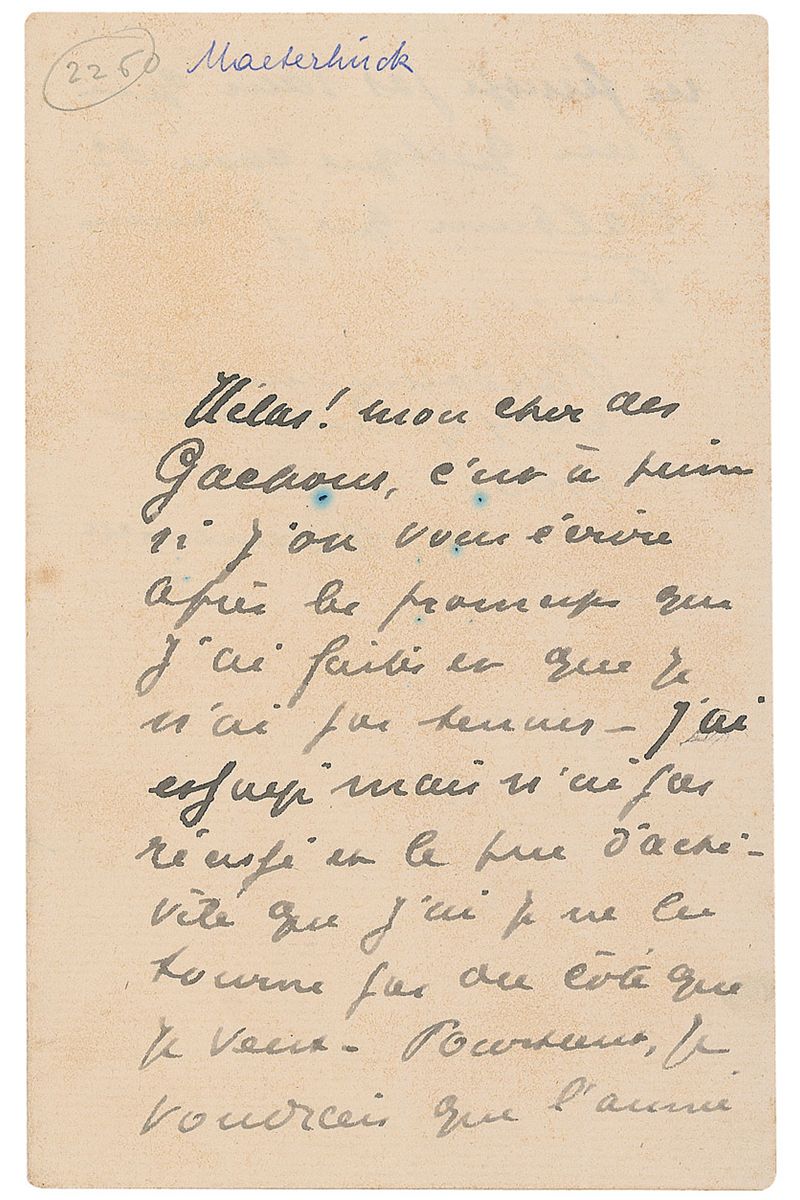 2250 Maeterlinck
Hélas! mon cher des
Gachons, c'est à peine
si j'ose vous écrire
après les promesses que
j'ai faites et que je
n'ai pas tenues - J'ai
essayé mais n'ai pas
réussi et le peu d'acti-
vité que j'ai je ne la
tourne pas du côté que
je veux - Pourtant, je
voudrais que l'année